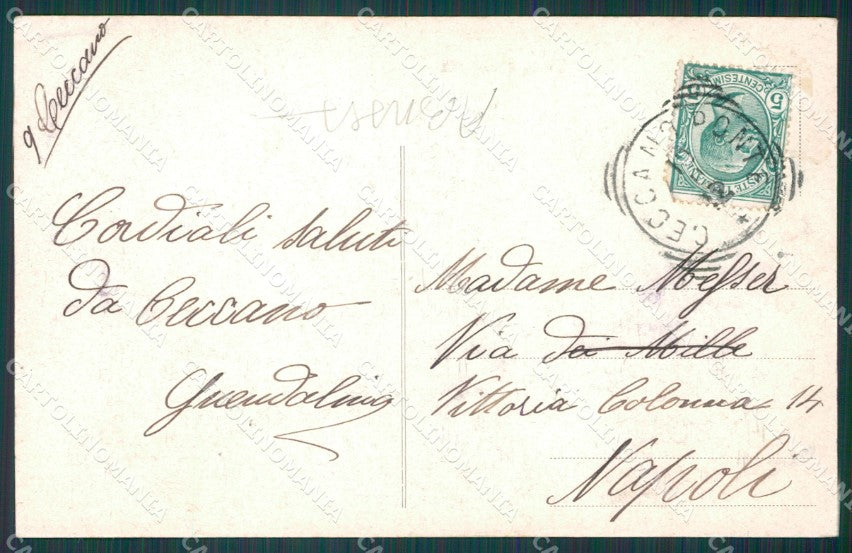 9 Ceccano
Cordiali saluti
da Ceccano
Guendalina
Madame Messer
Via dei Mille
Vittoria Colonna 14
Napoli
CECCANO
POSTE ITALIANE
CENTESIMI 5
CARTOLINOMANIA